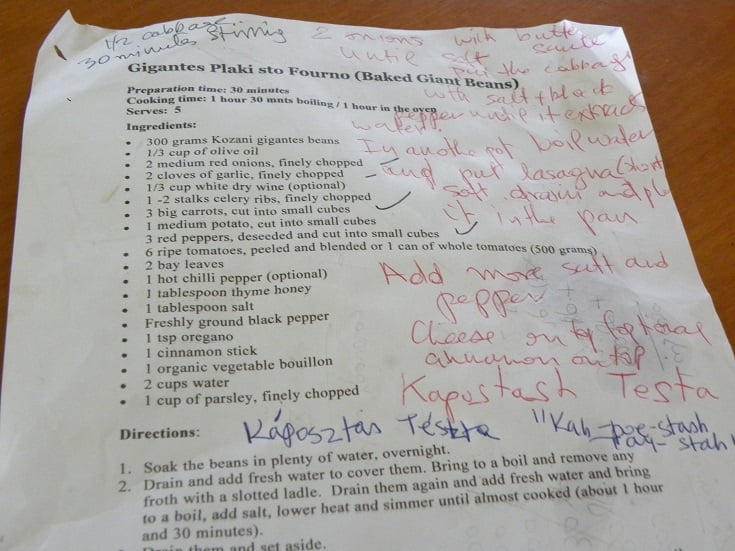 1/2 cabbage
30 minutes stirring
2 onions with butter
until soft saute
put the cabbage
with salt + black
pepper until it extracts
water.
In another pot boil water
and put lasagna (short
soft drain and
it in the pan
Add more salt and
pepper
Cheese on top optional
cinnamon on top
Kapostash Testa
Káposztás Tészta "Kah-poe-stash
tay-stah"
Gigantes Plaki sto Fourno (Baked Giant Beans)
Preparation time: 30 minutes
Cooking time: 1 hour 30 mnts boiling / 1 hour in the oven
Serves: 5
Ingredients:
• 300 grams Kozani gigantes beans
• 1/3 cup of olive oil
• 2 medium red onions, finely chopped
• 2 cloves of garlic, finely chopped
• 1/3 cup white dry wine (optional)
• 1 -2 stalks celery ribs, finely chopped
• 3 big carrots, cut into small cubes
• 1 medium potato, cut into small cubes
3 red peppers, deseeded and cut into small cubes
• 6 ripe tomatoes, peeled and blended or 1 can of whole tomatoes (500 grams)
• 2 bay leaves
• 1 hot chilli pepper (optional)
• 1 tablespoon thyme honey
• 1 tablespoon salt
• Freshly ground black pepper
• 1 tsp oregano
• 1 cinnamon stick
• 1 organic vegetable bouillon
• 2 cups water
• 1 cup of parsley, finely chopped
Directions:
1. Soak the beans in plenty of water, overnight.
2. Drain and add fresh water to cover them. Bring to a boil and remove any
froth with a slotted ladle. Drain them again and add fresh water and bring
to a boil, add salt, lower heat and simmer until almost cooked (about 1 hour
and 30 minutes).
Drain them and set aside.